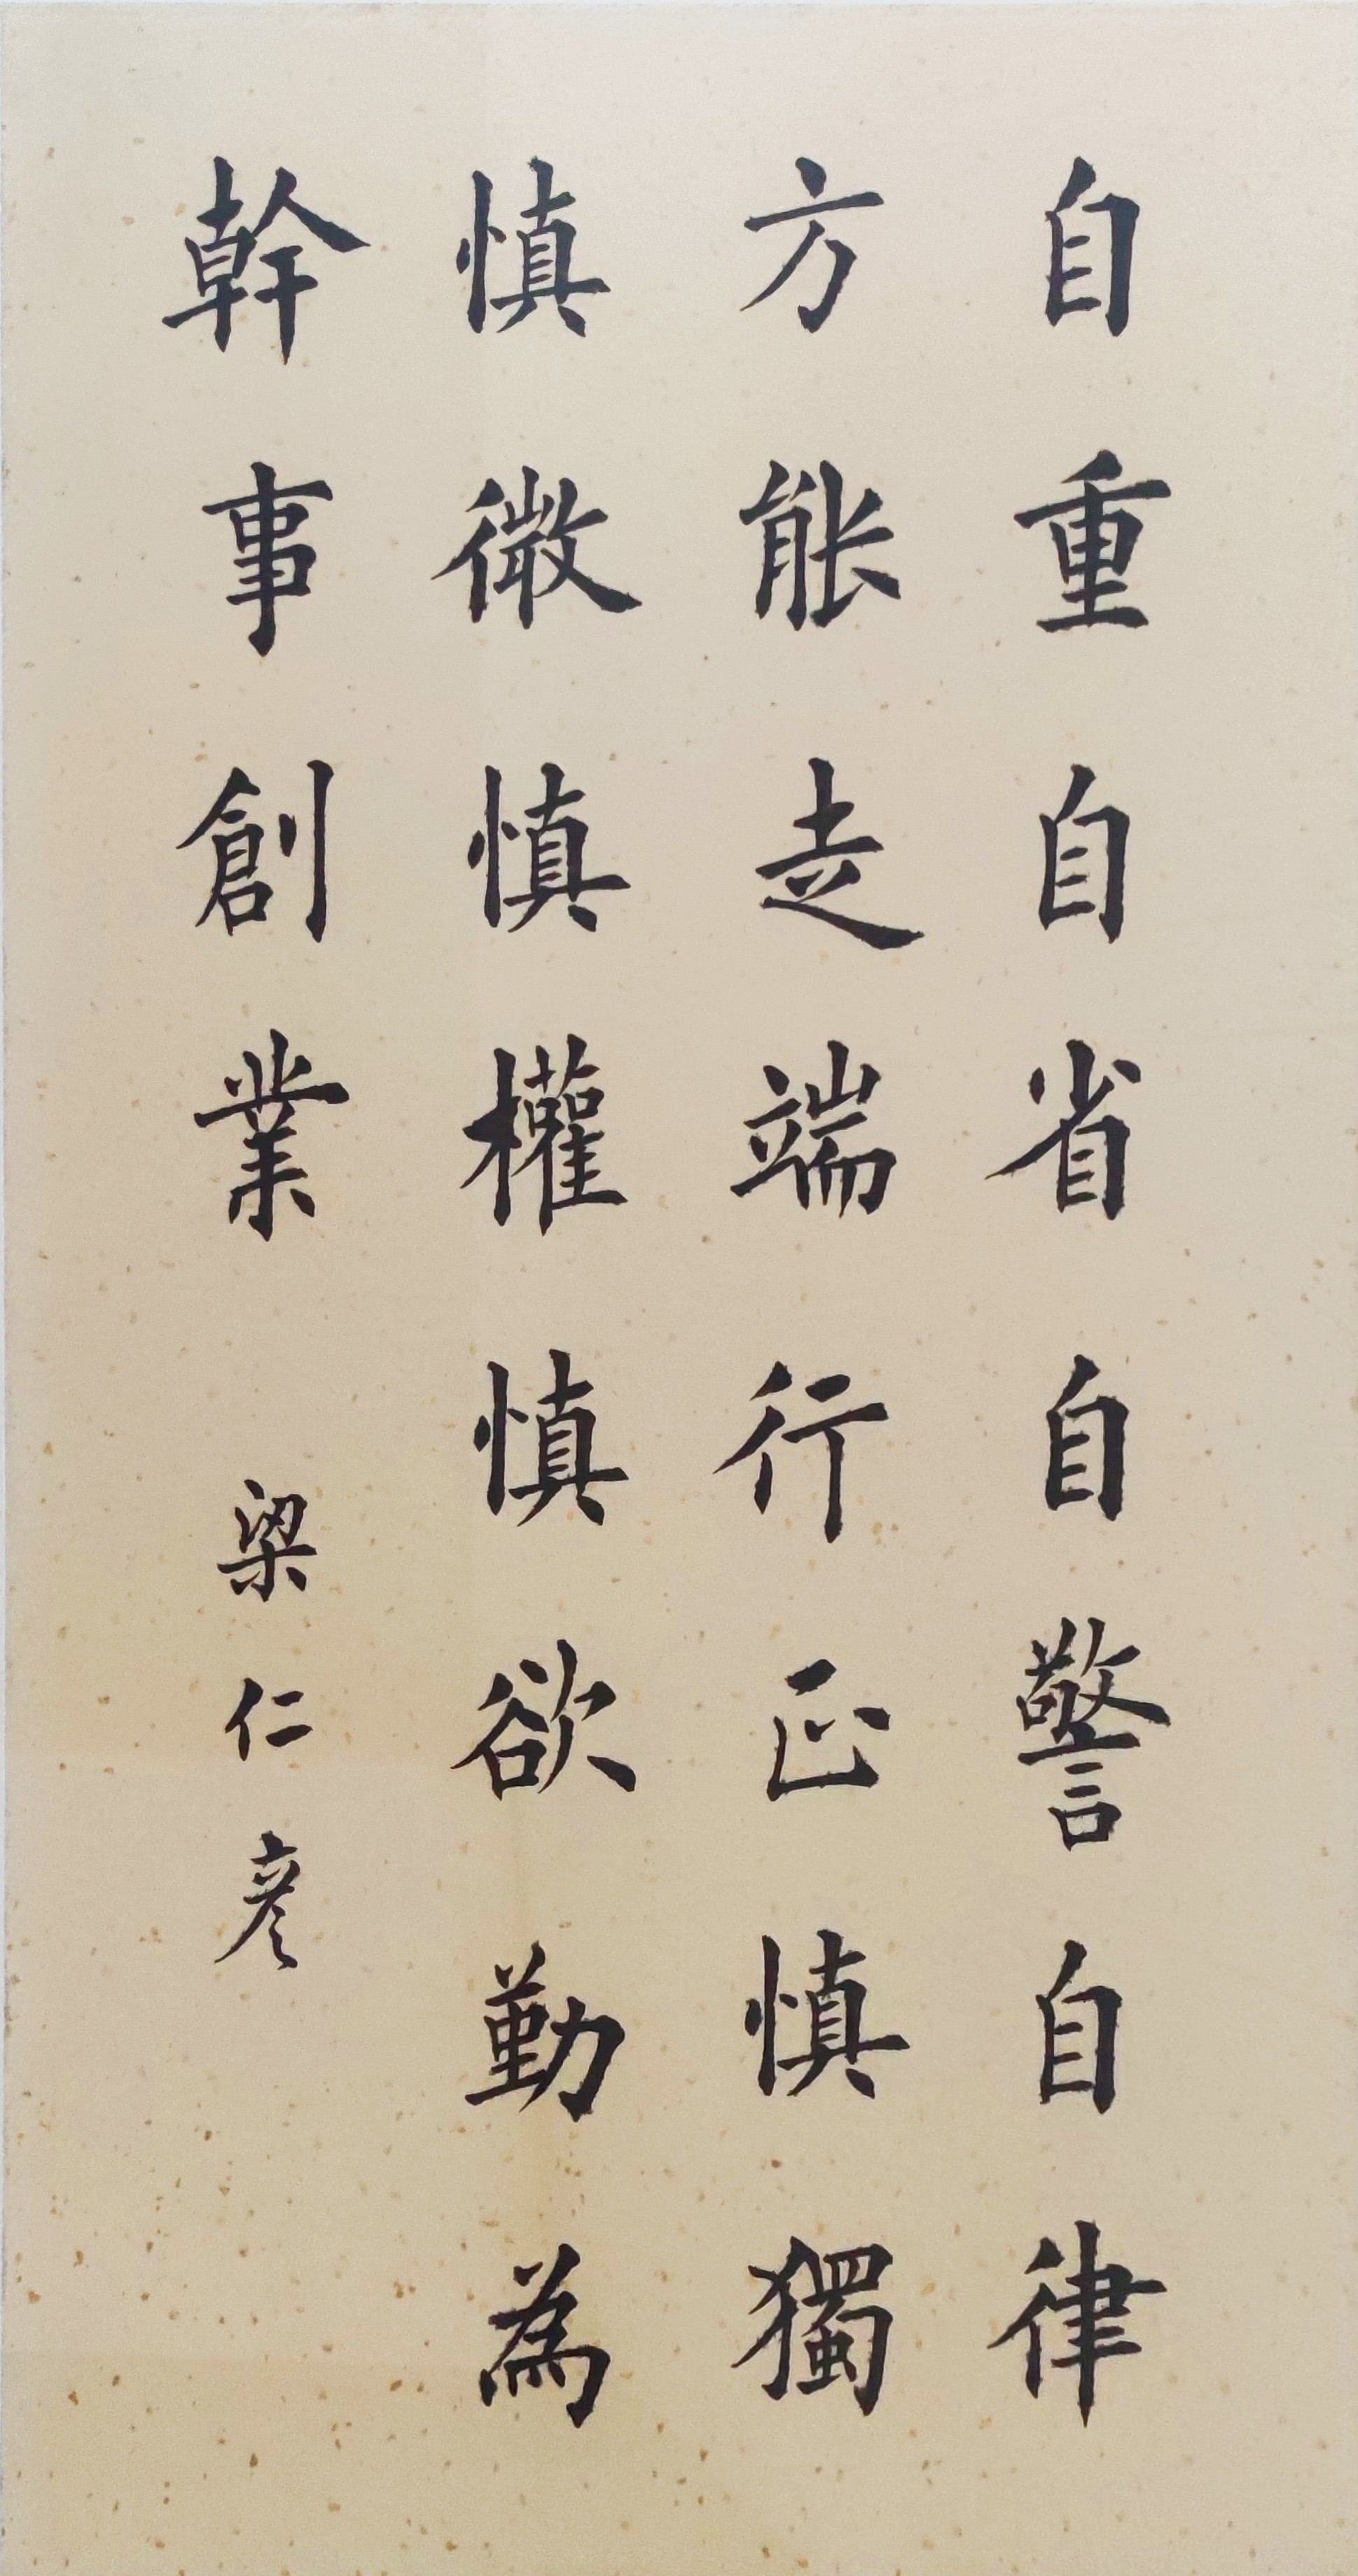 自重自省自警自律
方能走端行正慎獨
慎微慎權慎欲勤為
幹事創業 梁仁彦